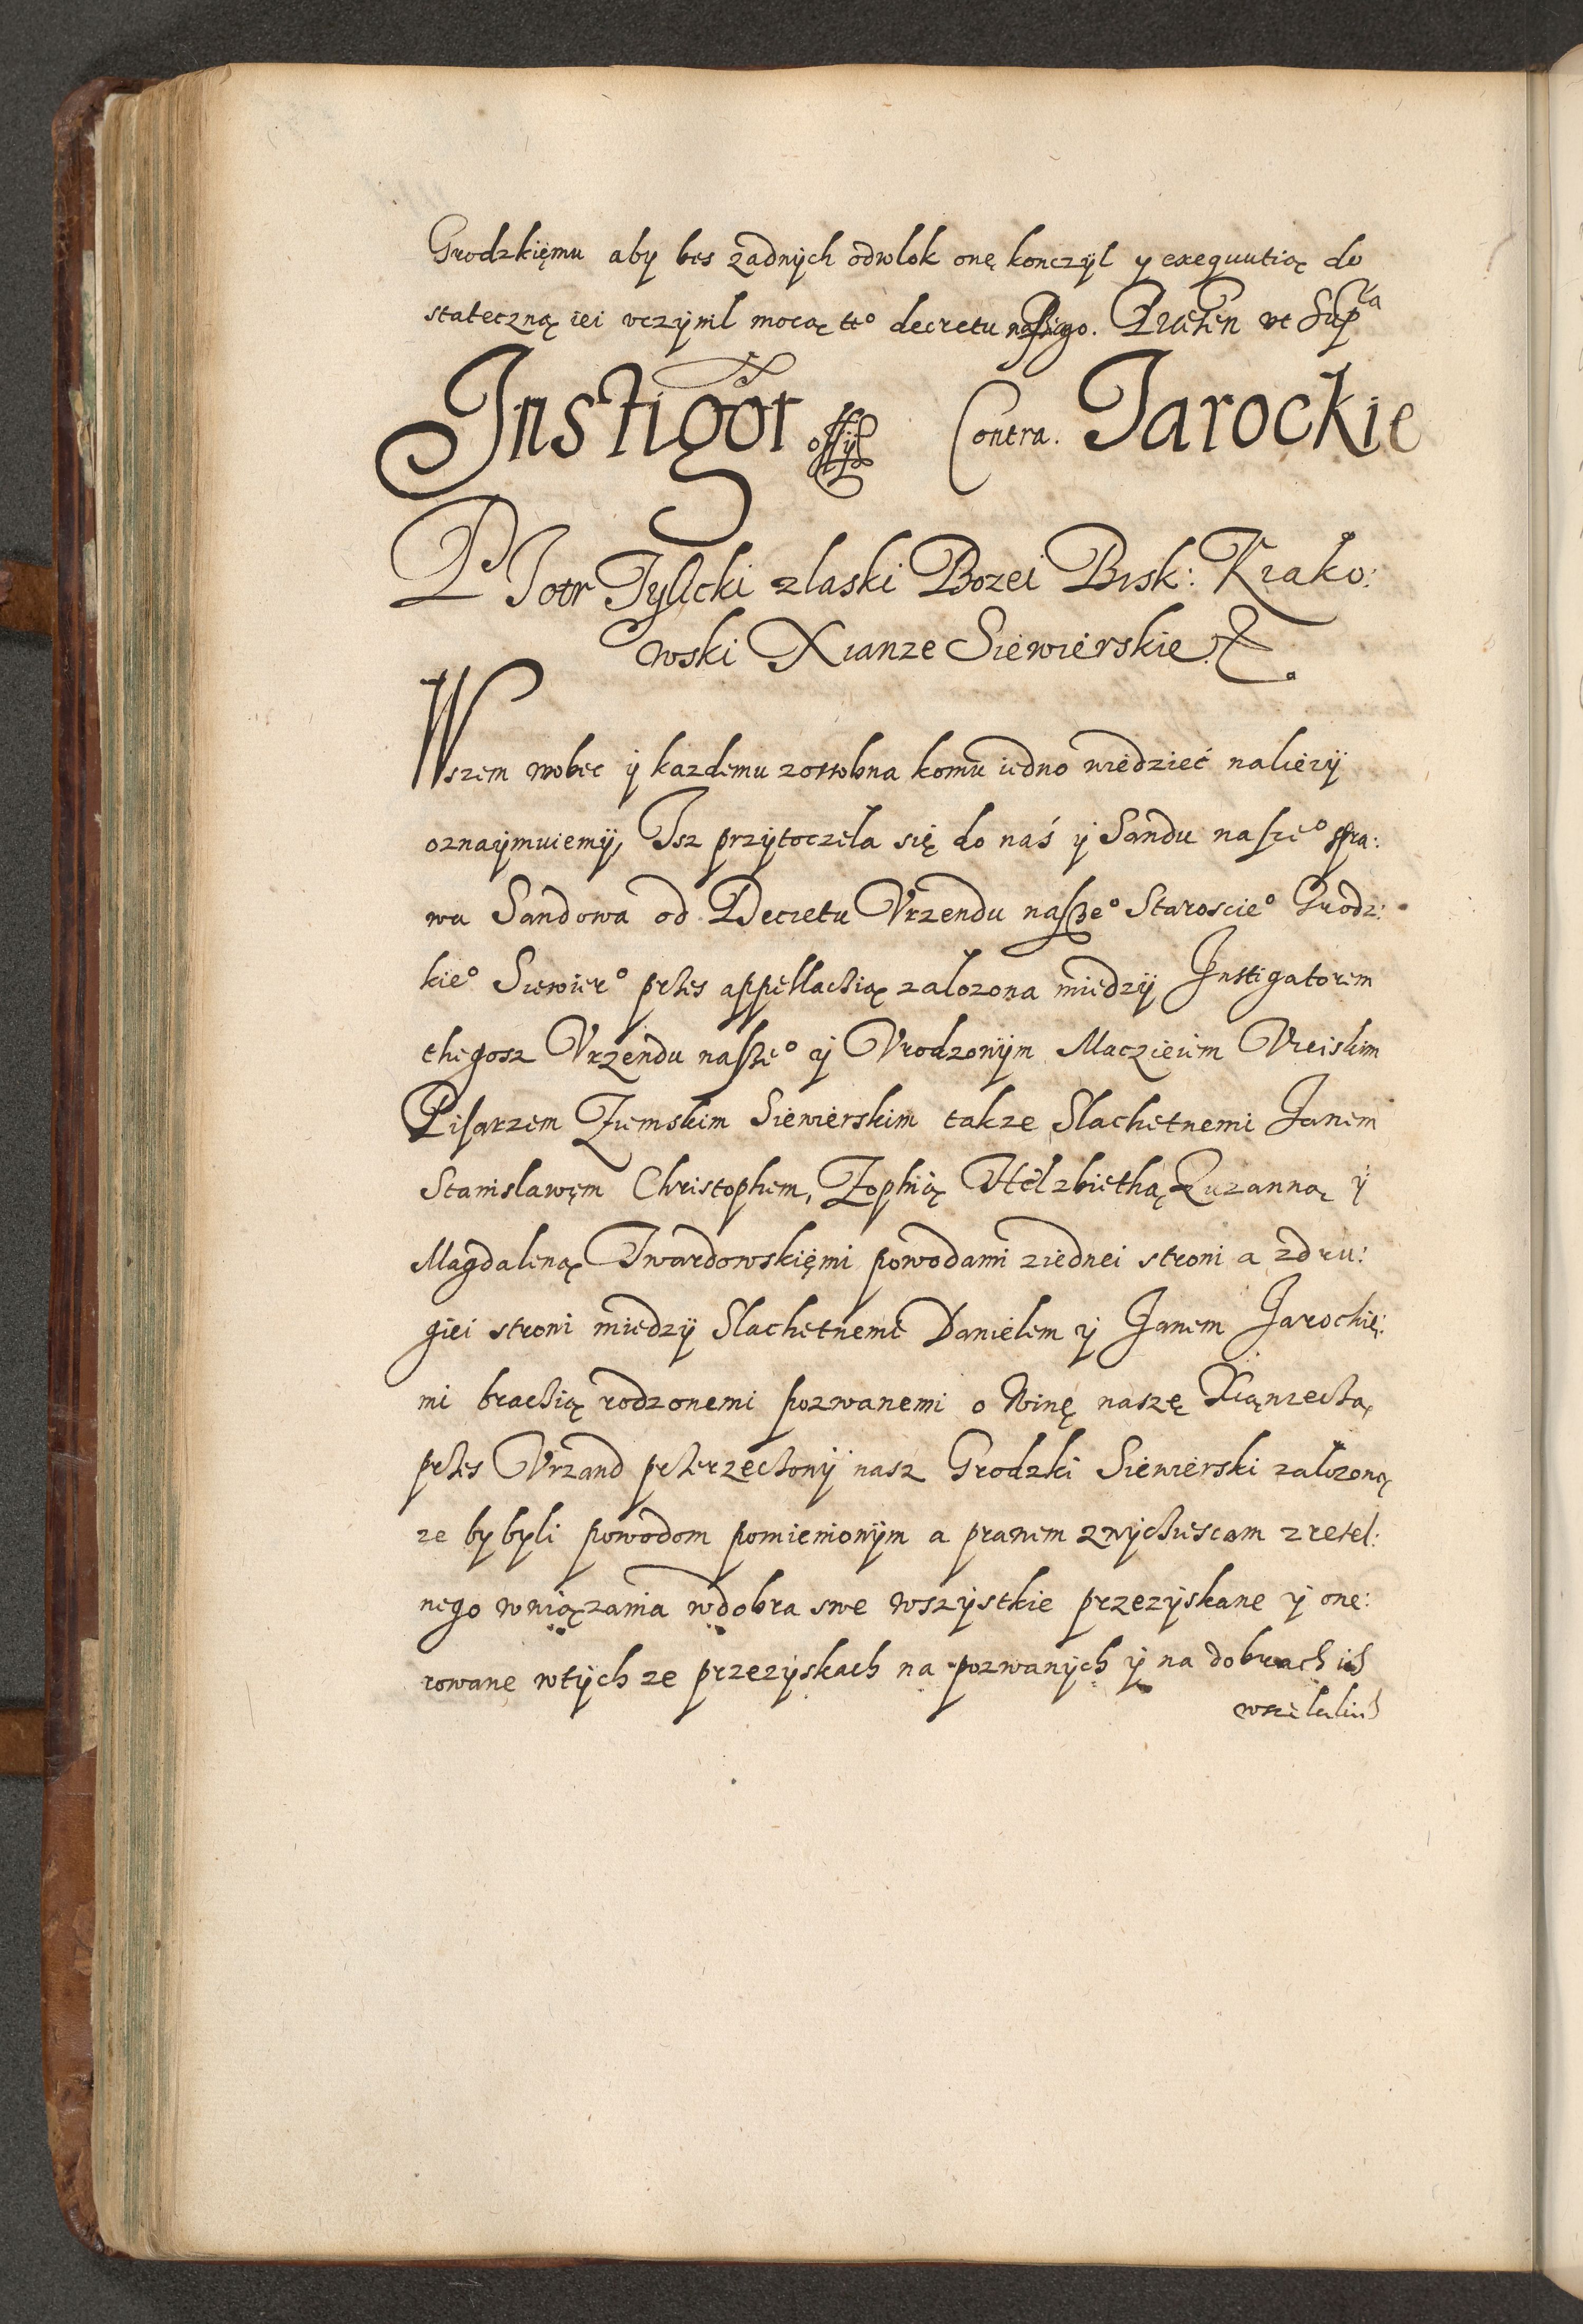 Grodzkięmu aby bes żadnÿch odwlok onę konczÿl y exequutią do
stateczną iei vczÿnil mocą tt° decretu naszego. Præsen vt Supra
Instigator offÿ Contra. Jarockie
PIotr Tylicki zlaski Bozei Bisk: Krako:
wski Xianze Siewierskie &.
Wszem wobec ÿ kazdemu zossobna komu iedno wiedzieć naliezÿ
oznaÿmuiemÿ, Isz przÿtoczela się do naś ÿ Sandu nasze° spra:
wa Sandowa od Decretu Vrzendu nasze° Staroscie° Grodz:
kie° Siewier° przes appellachią zalozona miedzÿ Instigatorem
thegosz Vrzendu nasze° ÿ Vrodzonÿm Macziem Vieiskim
Pisarzem Ziemskim Siewierskim takze Slachetnemi Janem
Stanislawęm Christophem, Zophią Helzbiethą Zuzanną ÿ
Magdaleną Twardowskięmi powodami ziednei stroni a zdru:
giei stroni miedzÿ Slachetnemi Danielem ÿ Janem Jarockię:
mi brachią rodzonemi pozwanemi o Winę naszę Xiąnzechą
przes Vrzand przerzechonÿ nasz Grodzki Siewierski zalozoną
ze by byli powodom pomienionÿm a prawem zwÿchiescam zretel:
nego wwiązania wdobra swe wszÿstkie przezÿskane ÿ one:
rowane wtÿch ze przezÿskach na pozwanÿch ÿ na dobrach ich